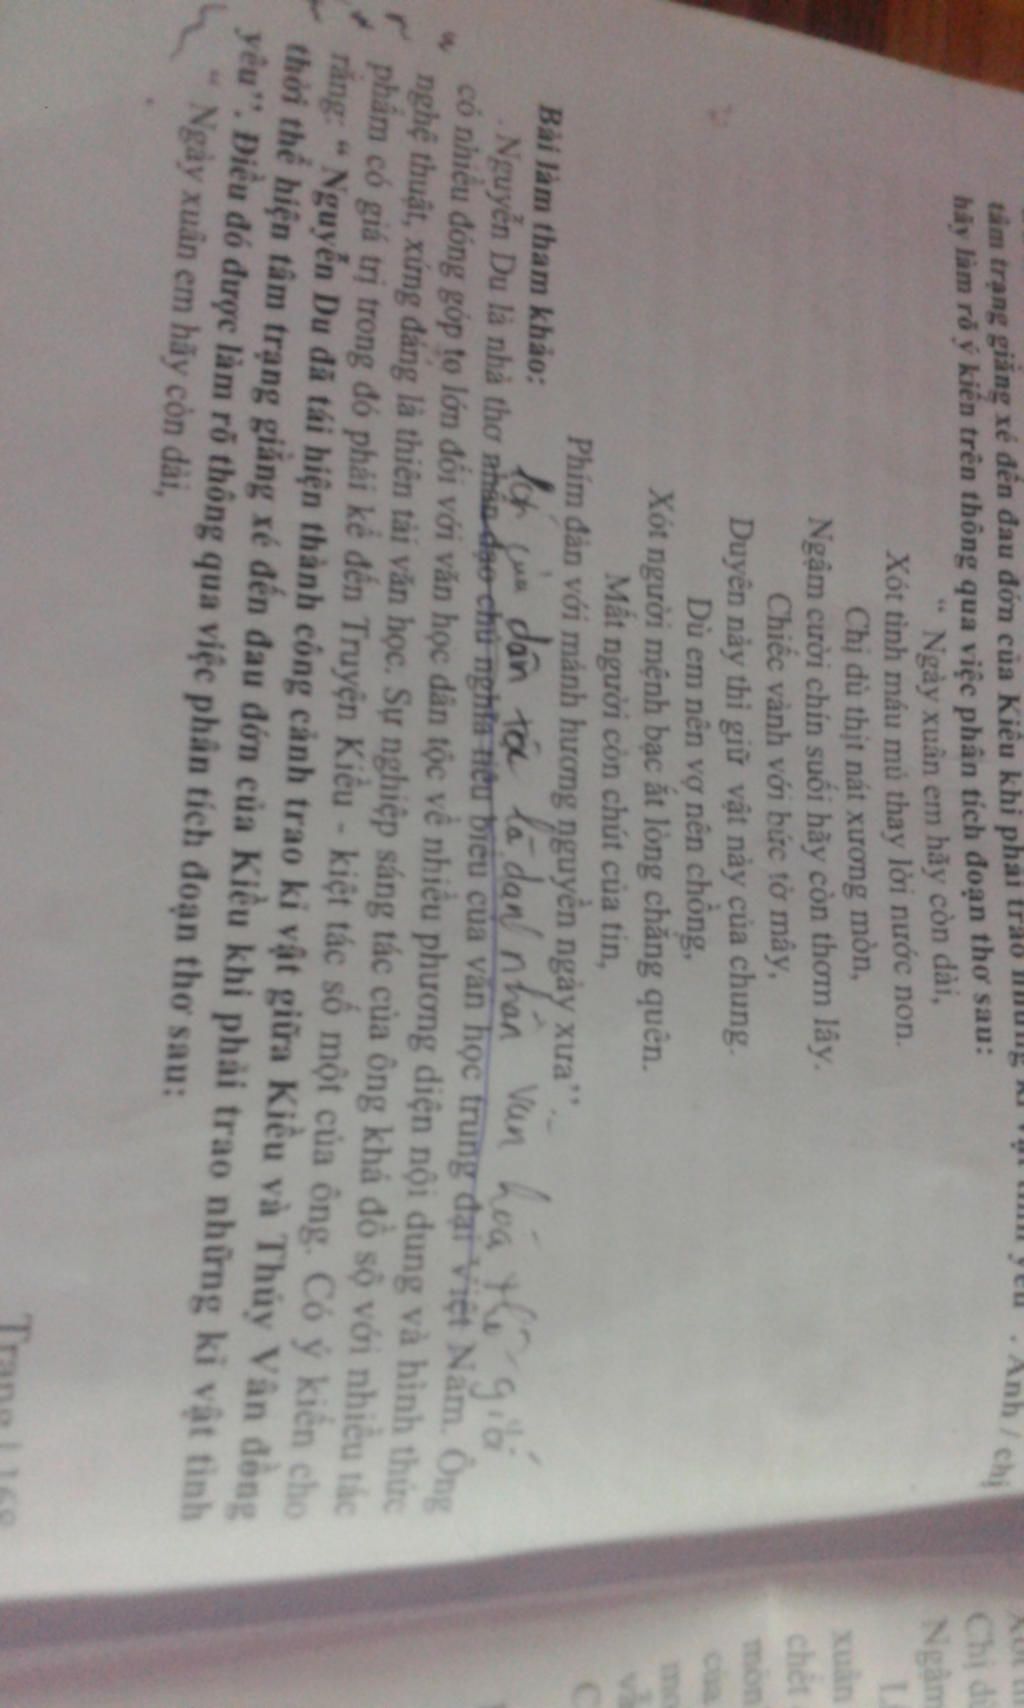 tâm trạng giằng xé đến đau đớn của Kiều khi phải trao những kỉ vật tình yêu". Anh / chị
hãy làm rõ ý kiến trên thông qua việc phân tích đoạn thơ sau:
" Ngày xuân em hãy còn dài,
Xót tình máu mủ thay lời nước non.
Chị dù thịt nát xương mòn,
Ngậm cười chín suối hãy còn thơm lây.
Chiếc vành với bức tờ mây,
Duyên này thì giữ vật này của chung.
Dù em nên vợ nên chồng,
Xót người mệnh bạc ắt lòng chẳng quên.
Mất người còn chút của tin,
Phím đàn với mảnh hương nguyền ngày xưa".
Bài làm tham khảo:
của dân tộc là danh nhân văn hóa thế giới
Nguyễn Du là nhà thơ nhân đạo chủ nghĩa tiêu biểu của văn học trung đại Việt Nam. Ông
có nhiều đóng góp to lớn đối với văn học dân tộc về nhiều phương diện nội dung và hình thức
nghệ thuật, xứng đáng là thiên tài văn học. Sự nghiệp sáng tác của ông khá đồ sộ với nhiều tác
phẩm có giá trị trong đó phải kể đến Truyện Kiều - kiệt tác số một của ông. Có ý kiến cho
rằng: " Nguyễn Du đã tái hiện thành công cảnh trao kỉ vật giữa Kiều và Thúy Vân đồng
thời thể hiện tâm trạng giằng xé đến đau đớn của Kiều khi phải trao những kỉ vật tình
yêu". Điều đó được làm rõ thông qua việc phân tích đoạn thơ sau:
" Ngày xuân em hãy còn dài,
Trang | 168
Chị d
Ngậm
xuân
chết
mòn
của